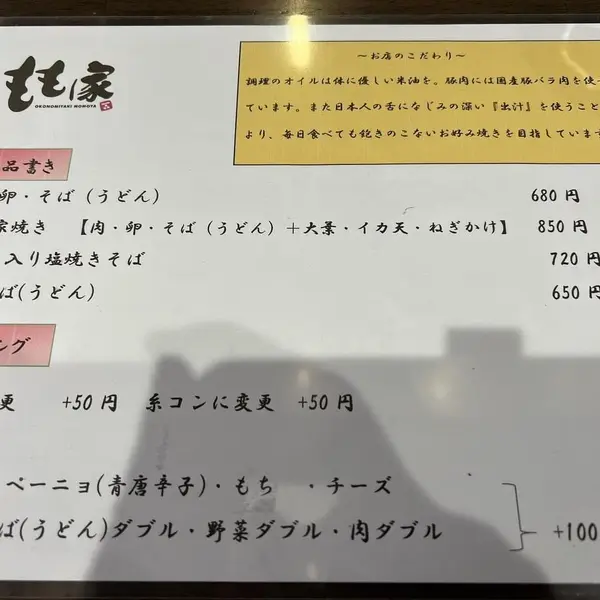 もも家
OKONOMIYAKI MOMOYA
～お店のこだわり～
調理のオイルは体に優しい米油を。豚肉には国産豚バラ肉を使っ
ています。また日本人の舌になじみの深い『出汁』を使うこと
より、毎日食べても飽きのこないお好み焼きを目指しています
品書き
卵・そば（うどん） 680円
焼き 【肉・卵・そば（うどん）＋大葉・イカ天・ねぎかけ】 850円
入り塩焼きそば 720円
ば(うどん) 650円
ング
更 +50円 糸コンに変更 +50円
ペーニョ(青唐辛子)・もち ・チーズ
ば(うどん)ダブル・野菜ダブル・肉ダブル +100